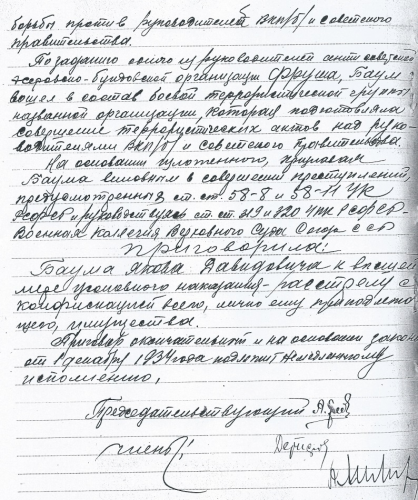 борьбы против руководителей ВКП/б/ и советского
правительства.
По заданию одного из руководителей антисоветской
бундовской организации Фрума, Баум
вошел в состав боевой террористической группы
названной организации, которая подготовляла
совершение террористических актов над руко-
водителями ВКП/б/ и советского правительства.
На основании изложенного, признавая
Баума виновным в совершении преступлений,
предусмотренных ст. ст. 58-8 и 58-11 УК
РСФСР и руководствуясь ст. ст. 319 и 320 УПК РСФСР-
Военная Коллегия Верховного Суда Союза ССР
приговорила:
Баума Якова Давидовича к высшей
мере уголовного наказания - расстрелу с
конфискацией всего, лично ему принадлежа-
щего, имущества.
Приговор окончательный и на основании закона
от 1 декабря 1934 года подлежит немедленному
исполнению.
Председательствующий
члены: